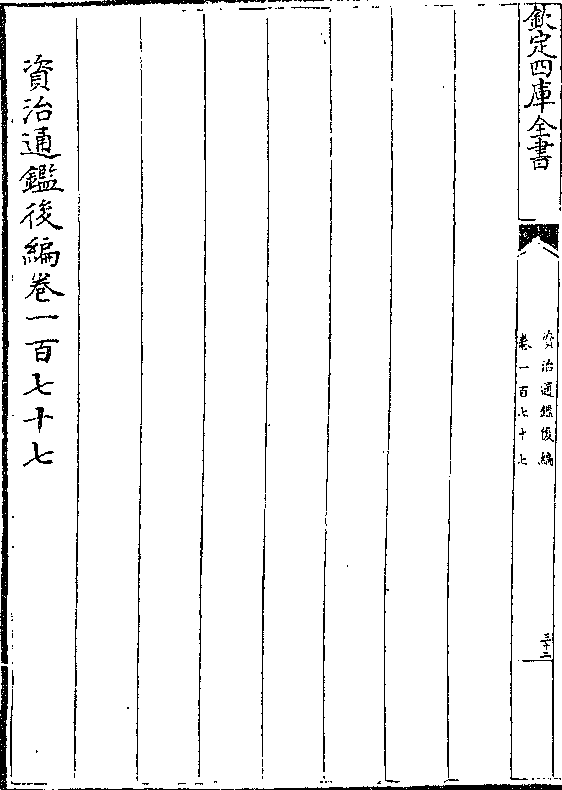 欽定四庫全書
資治通鑑後編
卷一百七十七
三十二
資治通鑑後編卷一百七十七